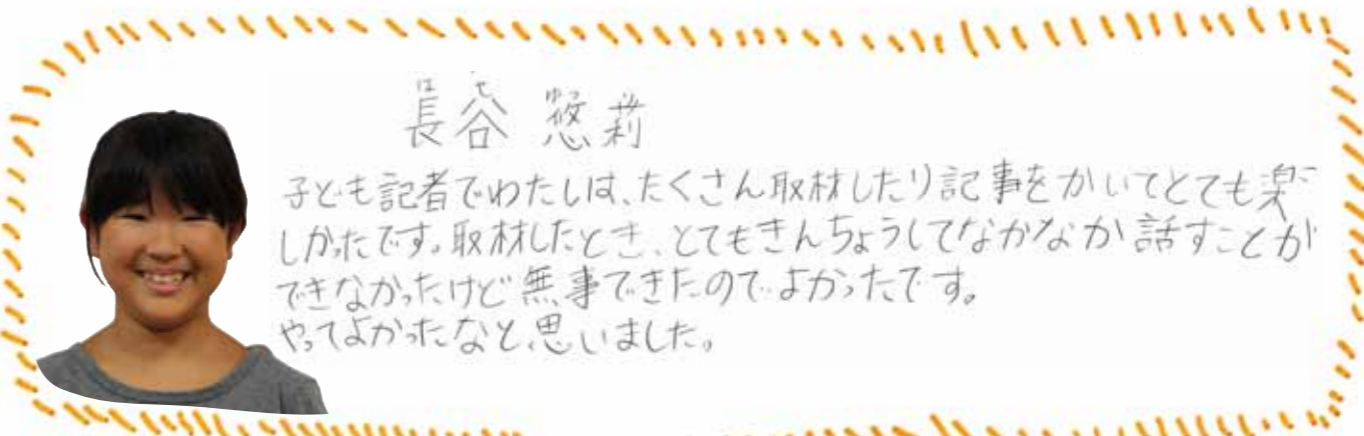 はせ ゆり
長谷 悠莉
子ども記者でわたしは、たくさん取材したり記事をかいてとても楽
しかったです。取材したとき、とてもきんちょうしてなかなか話すことが
できなかったけど無事できたのでよかったです。
やってよかったなと、思いました。